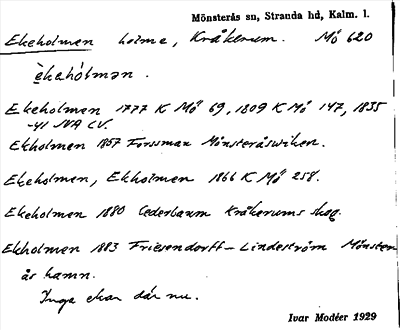 Mönsterås sn, Stranda hd, Kalm. l.
Ekeholmen holme, Kråkerum. Mö 620
èkehólmən.
Ekeholmen 1777 K Mö 69, 1809 K Mö 147, 1835
-41 JVA LV.
Ekholmen 1857 Forssman Mönsteråswiken.
Ekeholmen, Ekholmen 1866 K Mö 258.
Ekeholmen 1880 Cederbaum Kråkerums skog.
Ekholmen 1883 Friesendorff-Lindeström Mönster-
ås hamn.
Inga ekar där nu.
Ivar Modéer 1929